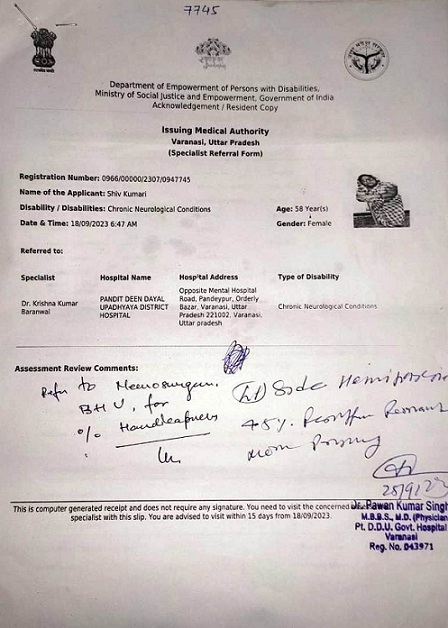 7745
Department of Empowerment of Persons with Disabilities,
Ministry of Social Justice and Empowerment, Government of India
Acknowledgement / Resident Copy
Issuing Medical Authority
Varanasi, Uttar Pradesh
(Specialist Referral Form)
Registration Number: 0966/00000/2307/0947745
Name of the Applicant: Shiv Kumari
Disability / Disabilities: Chronic Neurological Conditions
Age: 58 Year(s)
Date & Time: 18/09/2023 6:47 AM
Gender: Female
Referred to:
Specialist Hospital Name Hospital Address Type of Disability
Dr. Krishna Kumar Baranwal
PANDIT DEEN DAYAL UPADHYAYA DISTRICT HOSPITAL
Opposite Mental Hospital
Road, Pandeypur, Orderly
Bazar, Varanasi, Uttar
Pradesh 221002. Varanasi,
Uttar pradesh
Chronic Neurological Conditions
Assessment Review Comments:
Refer to
BHU, for
Side
45%
This is computer generated receipt and does not require any signature. You need to visit the concerned
specialist with this slip. You are advised to visit within 15 days from 18/09/2023.
Dr. Pawan Kumar Singh
M.B.B.S., M.D. (Physician
Pt. D.D.U. Govt. Hospital
Varanasi
Reg. No. 043971